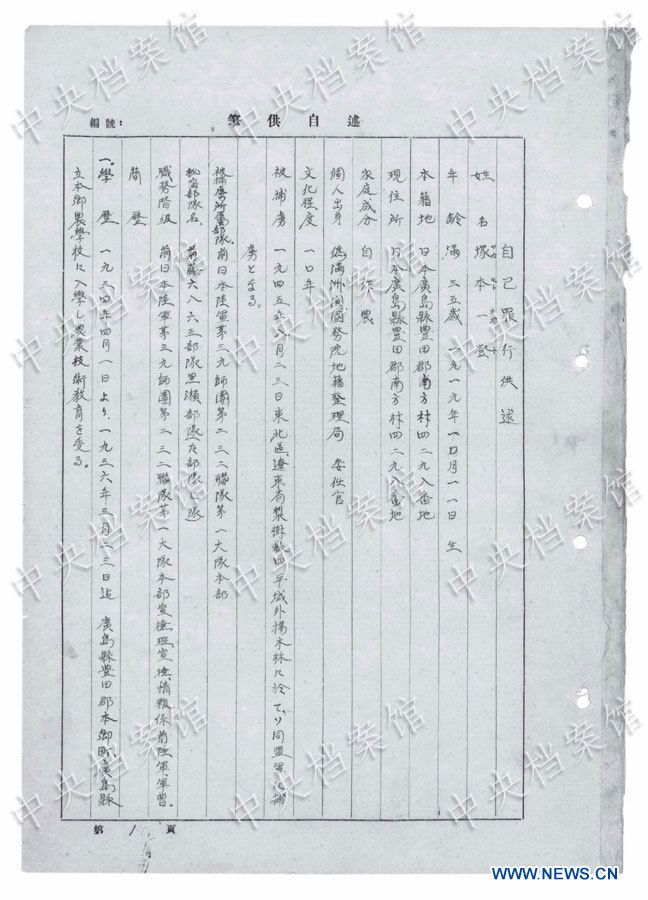 編號：
筆供自述
自己罪行供述
姓名 塚本一登
年齡 滿三五歲 一九一九年一〇月一一日生
本籍地 日本廣島縣豊田郡南方村四二九八番地
現住所 日本廣島縣豊田郡南方村四二九八番地
家庭成分 自作農
個人出身 偽滿洲國國務院地籍整理局 委任官
文化程度 一〇年
被捕虜 一九四五年八月二三日東北區、遼東省梨樹縣四平城外楊木林に於て、ソ同盟軍に捕
虜となる。
被捕虜所屬部隊 前日本陸軍第三九師團第二三二聯隊第一大隊本部
秘密部隊名 前藤六八六五部隊黒瀬部隊
職務階級 前日本陸軍第三九師團第二三二聯隊第一大隊本部宣撫班宣撫、情報係前陸軍、軍曹。
簡歷
一、學歷 一九三四年四月一日より、一九三六年三月二三日迄 廣島縣豊田郡本郷町、廣島縣
立本郷農學校に入學し農業技術教育を受る。
第 1 頁
中央档案馆
WWW.NEWS.CN